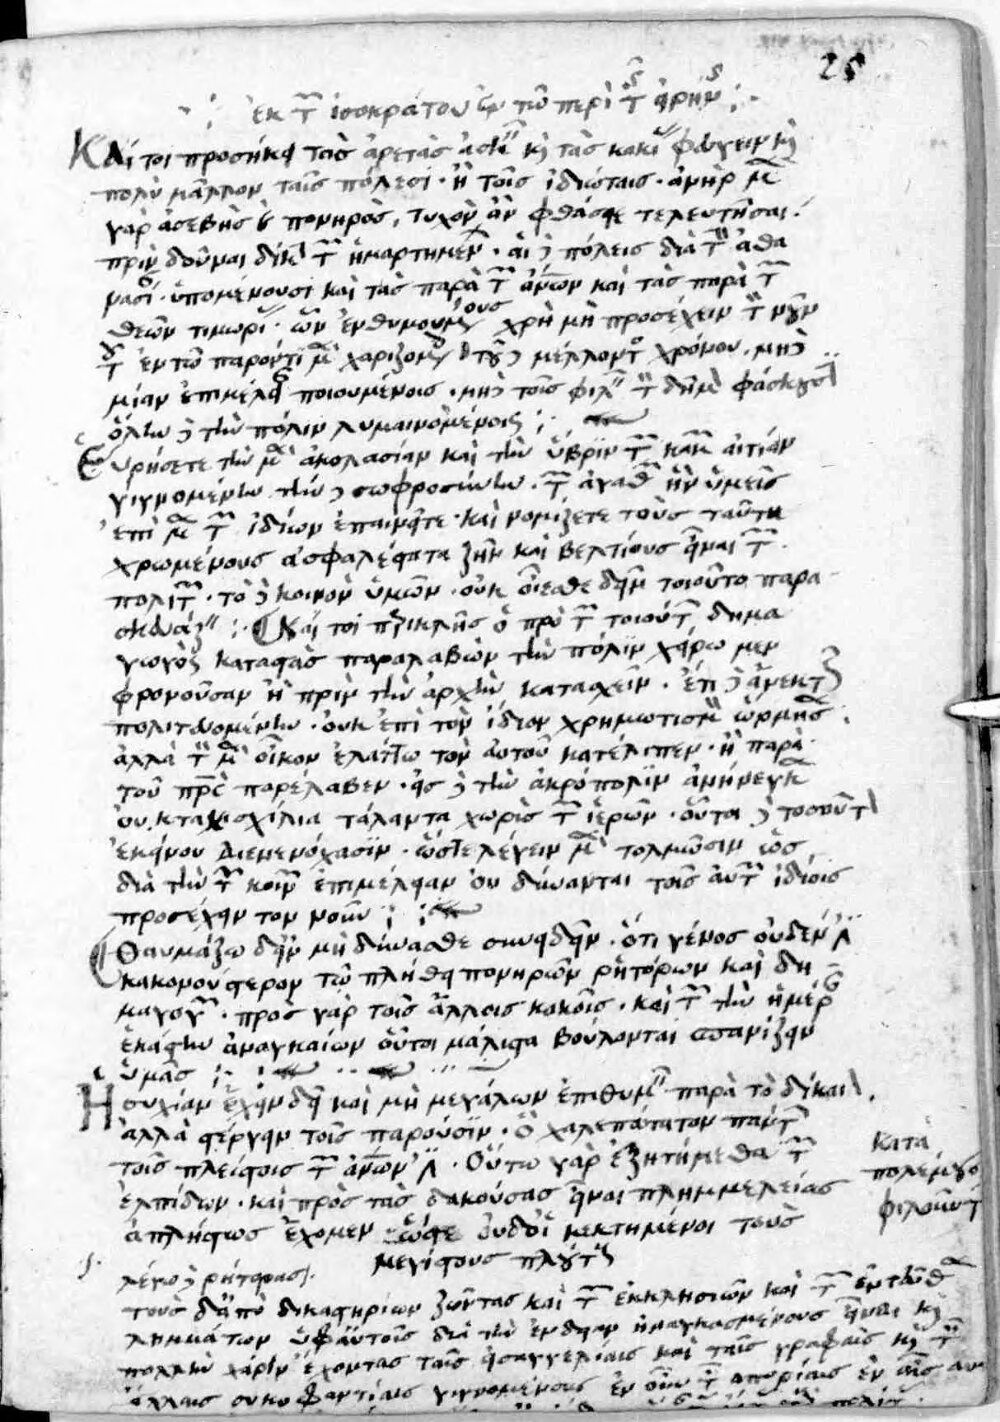 25
ἐκ τ ἰσοκράτους ἐν τῶ περὶ τ εἰρήνης
Καί τοι προσήκει τὰς ἀρετὰς ἀσκεῖν κὶ τὰς κακίας φεύγειν κὶ
πολὺ μᾶλλον ταῖς πόλεσι · ἢ τοῖς ἰδιώταις · ἀνὴρ μὲν
γὰρ ἀσεβὴς κ πονηρὸς, τυχὸν ἂν φθάσειε τελευτῆσαι ·
πρὶν δοῦναι δίκην τῶν ἡμαρτημένων · αἱ δὲ πόλεις διὰ τὴν ἀθα
νασίαν · ὑπομένουσι καὶ τὰς παρὰ τῶν ἀνων καὶ τὰς παρὰ τῶν
θεῶν τιμωρίας · ὧν ἐνθυμουμένους χρὴ μὴ προσέχειν τὸν νοῦν
τοῖς ἐν τῶ παρόντι μὲν χαριζομένοις τοῦ δὲ μέλλοντος χρόνου · μηδε
μίαν ἐπιμέλειαν ποιουμένοις · μηδὲ τοῖς φιλεῖν τὸν δῆμον φάσκουσιν
ὅλην δὲ τὴν πόλιν λυμαινομένοις
Εὑρήσετε τὴν μὲν ἀκολασίαν καὶ τὴν ὕβριν τῶν κακῶν αἰτίαν
γιγνομένην τὴν δὲ σωφροσύνην · τῶν ἀγαθῶν ἣν ὑμεῖς
ἐπὶ μὲν τῶν ἰδίων ἐπαινεῖτε · καὶ νομίζετε τοὺς ταύτη
χρωμένους ἀσφαλέστατα ζῆν καὶ βελτίους εἶναι τῶν
πολιτῶν · τὸ δὲ κοινὸν ὑμῶν · οὐκ οἴεσθε δεῖν τοιοῦτο παρα
σκευάζειν Καί τοι περικλῆς ὁ πρὸ τῶν τοιούτων δημα
γωγὸς καταστὰς παραλαβὼν τὴν πόλιν χείρω μεν
φρονοῦσαν ἢ πρὶν τὴν ἀρχὴν κατασχεῖν · ἔτι δὲ ἀνεκτῶς
πολιτευομένην · οὐκ ἐπὶ τὸν ἴδιον χρηματισμὸν ὥρμησεν
ἀλλὰ τὸν μὲν οἶκον ἐλάττω τὸν αὐτοῦ κατέλιπεν · ἢ παρὰ
τοῦ πρς παρέλαβεν · εἰς δὲ τὴν ἀκρόπολιν ἀνήνεγκεν
ὀκτακισχίλια τάλαντα χωρὶς τῶν ἱερῶν · οὗτοι δὲ τοσοῦτον
ἐκείνου διενενόχασιν · ὥστε λέγειν μὲν τολμῶσιν ὡς
διὰ τὴν τῶν κοινῶν ἐπιμέλειαν οὐ δύνανται τοῖς αὐτῶν ἰδίοις
προσέχειν τον νοῦν
Θαυμάζω δ' εἰ μὴ δύνασθε συνιδεῖν · ὅτι γένος οὐδέν ἐστι
κακονούστερον τῶ πλήθει πονηρῶν ῥητόρων καὶ δη
μαγωγῶν · πρὸς γὰρ τοῖς ἄλλοις κακοῖς · καὶ τῶν τὴν ἡμέραν
ἑκάστην ἀναγκαίων οὗτοι μάλιστα βούλονται σπανίζειν
ὑμᾶς
Ἡσυχίαν ἔχειν δεῖ καὶ μὴ μεγάλων ἐπιθυμεῖν παρὰ τὸ δίκαιον
ἀλλὰ στέργειν τοῖς παροῦσιν · ὃ χαλεπώτατον πάντων
τοῖς πλείστοις τῶν ἀνων ἐστι · Οὕτω γὰρ ἐξηρτήμεθα τῶν
ἐλπίδων · καὶ πρὸς τὰς δοκούσας εἶναι πλημμελείας
ἀπλήστως ἔχομεν ὥστε οὐδ' οἱ κεκτημένοι τοὺς
μεγίστους πλούτους
κατὰ
πολέμου
φιλούντων
λέγει δὲ ῥήτορας
τοὺς δ' ἀπὸ δικαστηρίων ζῶντας καὶ τῶν ἐκκλησιῶν καὶ τῶν ἐντεῦθεν
λημμάτων ὑφ' αὑτοῖς διὰ τὴν ἔνδειαν ἠναγκασμένους εἶναι κὶ
πολλὴν χάριν ἔχοντας ταῖς εἰσαγγελίαις καὶ ταῖς γραφαῖς κὶ ταῖς
ἄλλαις συκοφαντίαις γιγνομέναις ἐν οὖν ταῖς ἀπορίαις ἐν αἷς